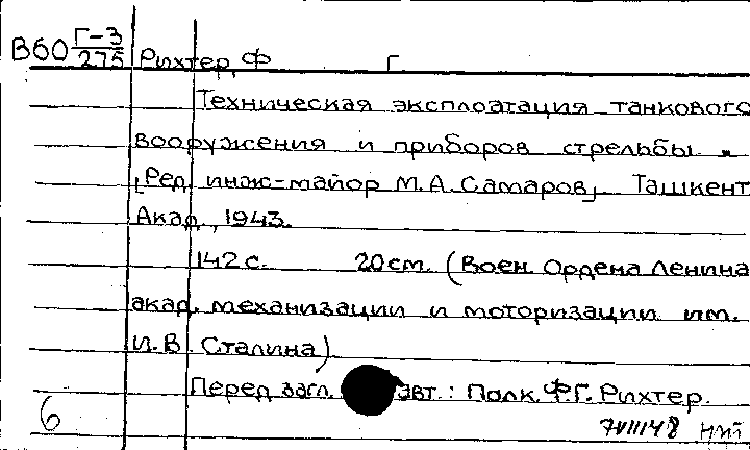 В60 Г-3/275 Рихтер, Ф Г
Техническая эксплоатация танкового
вооружения и приборов стрельбы.
[Ред. инж-майор М.А. Самаров]. Ташкент
Акад., 1943.
142 с. 20 см. (Воен. Ордена Ленина
акад. механизации и моторизации им.
И.В. Сталина)
Перед загл. авт.: Полк. Ф.Г. Рихтер.
6